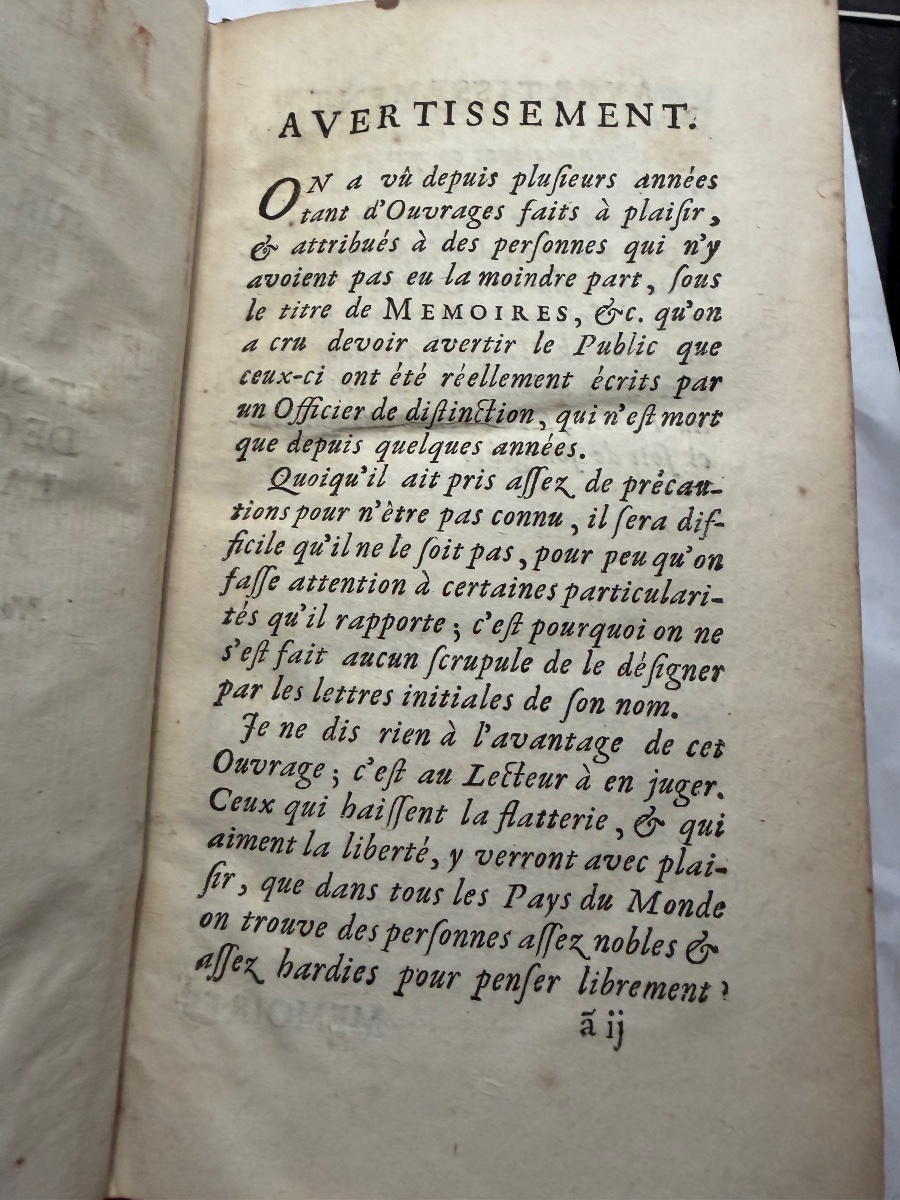 AVERTISSEMENT.
ON a vû depuis pluſieurs années
tant d'Ouvrages faits à plaiſir,
& attribués à des perſonnes qui n'y
avoient pas eu la moindre part, ſous
le titre de MEMOIRES, &c. qu'on
a cru devoir avertir le Public que
ceux-ci ont été réellement écrits par
un Officier de diſtinction, qui n'eſt mort
que depuis quelques années.
Quoiqu'il ait pris aſſez de précau-
tions pour n'être pas connu, il ſera dif-
ficile qu'il ne le ſoit pas, pour peu qu'on
faſſe attention à certaines particulari-
tés qu'il rapporte; c'eſt pourquoi on ne
s'eſt fait aucun ſcrupule de le déſigner
par les lettres initiales de ſon nom.
Je ne dis rien à l'avantage de cet
Ouvrage; c'eſt au Lecteur à en juger.
Ceux qui haiſſent la flatterie, & qui
aiment la liberté, y verront avec plai-
ſir, que dans tous les Pays du Monde
on trouve des perſonnes aſſez nobles &
aſſez hardies pour penſer librement?
ã ij